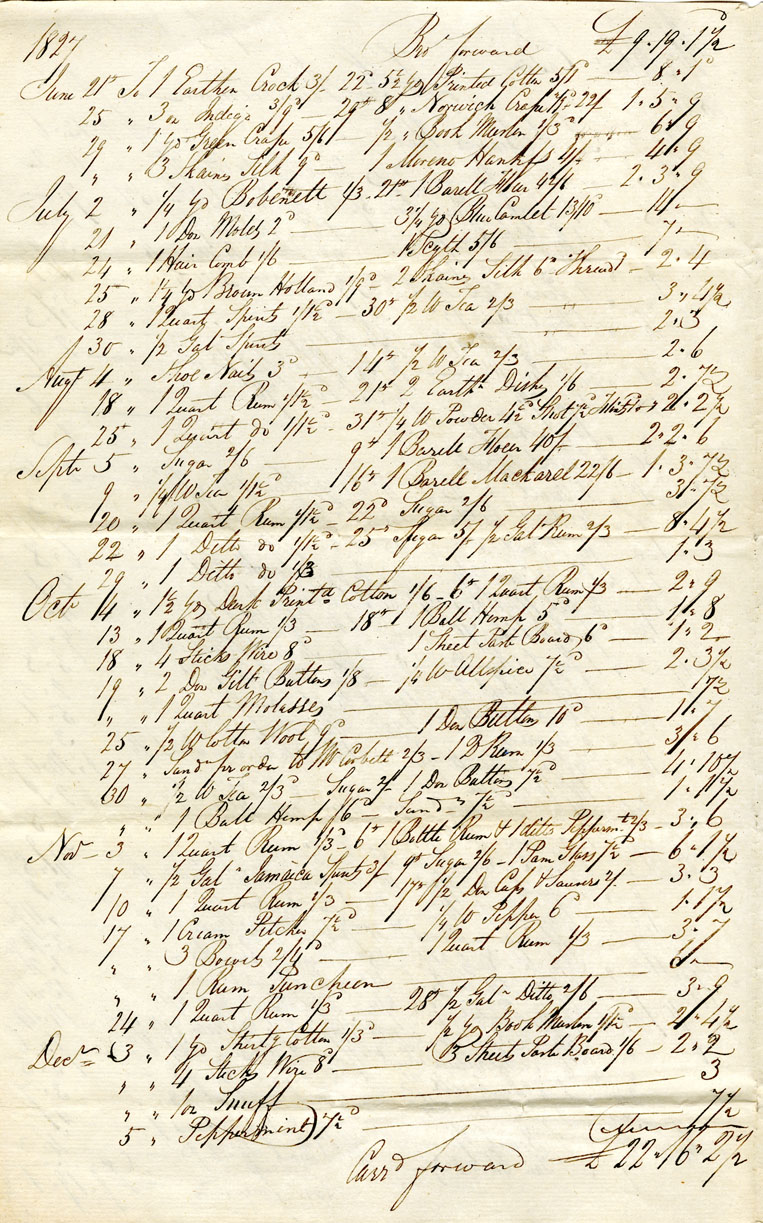 1827 Bro.t forward £9.19.1½
June 21st To 1 Earthen Crock 3/- 22d 5½ yd Printed Cotton 5/1d — 8"1d
25 " 3 oz Indigo 3/9d — 29th 8 " Norwich Crape — 22/ 1"5"9
29 " 1 yd Green Crape 5/6 — ½ " Book Muslin 1/3d — 6"9
" " 3 Skains Silk 9d — 1 Moreno Hankf 4/- — 4"9
July 2 " ¼ yd Bobenett 1/3 - 21st 1 Barell Flour 42/6 — 2"3"9
21 " 1 Doz Molds 2d — 3¼ yd Blue Camlet 13/10d — 14"–
24 " 1 Hair Comb 1/6 — 1 Scyth 5/6 — 7"–
25 " 1¼ yd Brown Holland 1/9d — 2 Skains Silk 6d Thread 1d — 2"4
28 " 1 Quart Spirits 1/1½d — 30th ½ W Tea 2/3 — 3"4½
30 " ½ Gal Spirits — 2"3
Augt 4 " Shoe Nails 3d — 14th ½ W Tea 2/3 — 2"6
18 " 1 Quart Rum 1/1½d — 21st 2 Earthn Dishes 1/6 — 2"7½
25 " 1 Quart do 1/1½d - 31st ¼ W Powder 4½d Shot 7½ 2"2½
Septr 5 " Sugar 2/6 — 9th 1 Barell Flour 40/ — 2"2"6
9 " ¼ W Tea 1/1½d — 16th 1 Barell Mackarel 22/6 — 1"3"7½
20 " 1 Quart Rum 1/1½d — 22d Sugar 2/6 — 3"7½
22 " 1 Ditto do 1/1½d — 25th Sugar 5/ ½ Gal Rum 2/3 — 8"4½
29 " 1 Ditto do 1/3 — 1"3
Octr 4 " 1½ yd Dark Printd Cotton 1/6 - 6th 1 Quart Rum 1/3 — 2"9
13 " 1 Quart Rum 1/3 — 18th 1 Ball Hemp 5d — 1"8
18 " 4 Sticks Wire 8d — 1 Sheet Past Board 6d — 1"2
19 " 2 Doz Gilt Buttons 1/8 — ¼ W Allspice 7½d — 2"3½
" " 1 Quart Molasses — 7½
25 " ½ W Cotton Wool 9d — 1 Doz Buttons 10d — 1"7
27 " Sand pr order to Mr Corbett 2/3 - 1 B Rum 1/3 — 3"6
30 " ½ W Tea 2/3d — Sugar 2/ 1 Doz Buttons 7½d — 4"10½
" " 1 Ball Hemp 6d — Sand " 7½d — 1"1½
Novr 3 " 1 Quart Rum 1/3d - 6th 1 Bottle Rum & 1 ditto Peppermt 2/3 — 3"6
7 " ½ Gal Jamaica Spirits 3/ 9th Sugar 2/6 - 1 Pam Glass 7½d — 6"1½
10 " 1 Quart Rum 1/3 — 17th ½ Doz Cups & Saucers 2/ — 3"3
17 " 1 Cream Pitcher 7½d — ¼ W Pepper 6d — 1"1½
" " 3 Bowels 2/4d — 1 Quart Rum 1/3 — 3"7
" " 1 Rum Puncheon — 6"–
24 " 1 Quart Rum 1/3d — 28th ½ Gal Ditto 2/6 — 3"9
Decr 3 " 1 yd Shirtg Cotton 1/3d — ½ yd Book Muslin 1/1½d — 2"4½
" " 4 Sticks Wire 8d — 3 Sheets Past Board 1/6 — 2"2
" " 1 oz Snuff — 3
5 " Peppermint 7½d — 7½
Carrd forward £22"16"2½